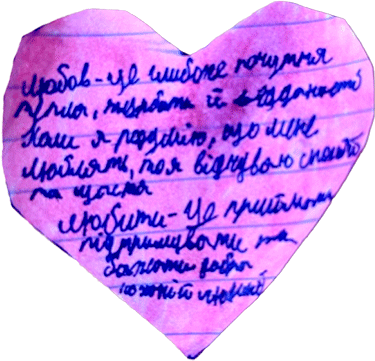 Любов - це глибоке почуття
тепла, турботи й відданості
Коли я розумію, що мене
люблять, то я відчуваю спокій
та щастя
Любити - це приймати
підтримувати та
бажати добра
кожній людині